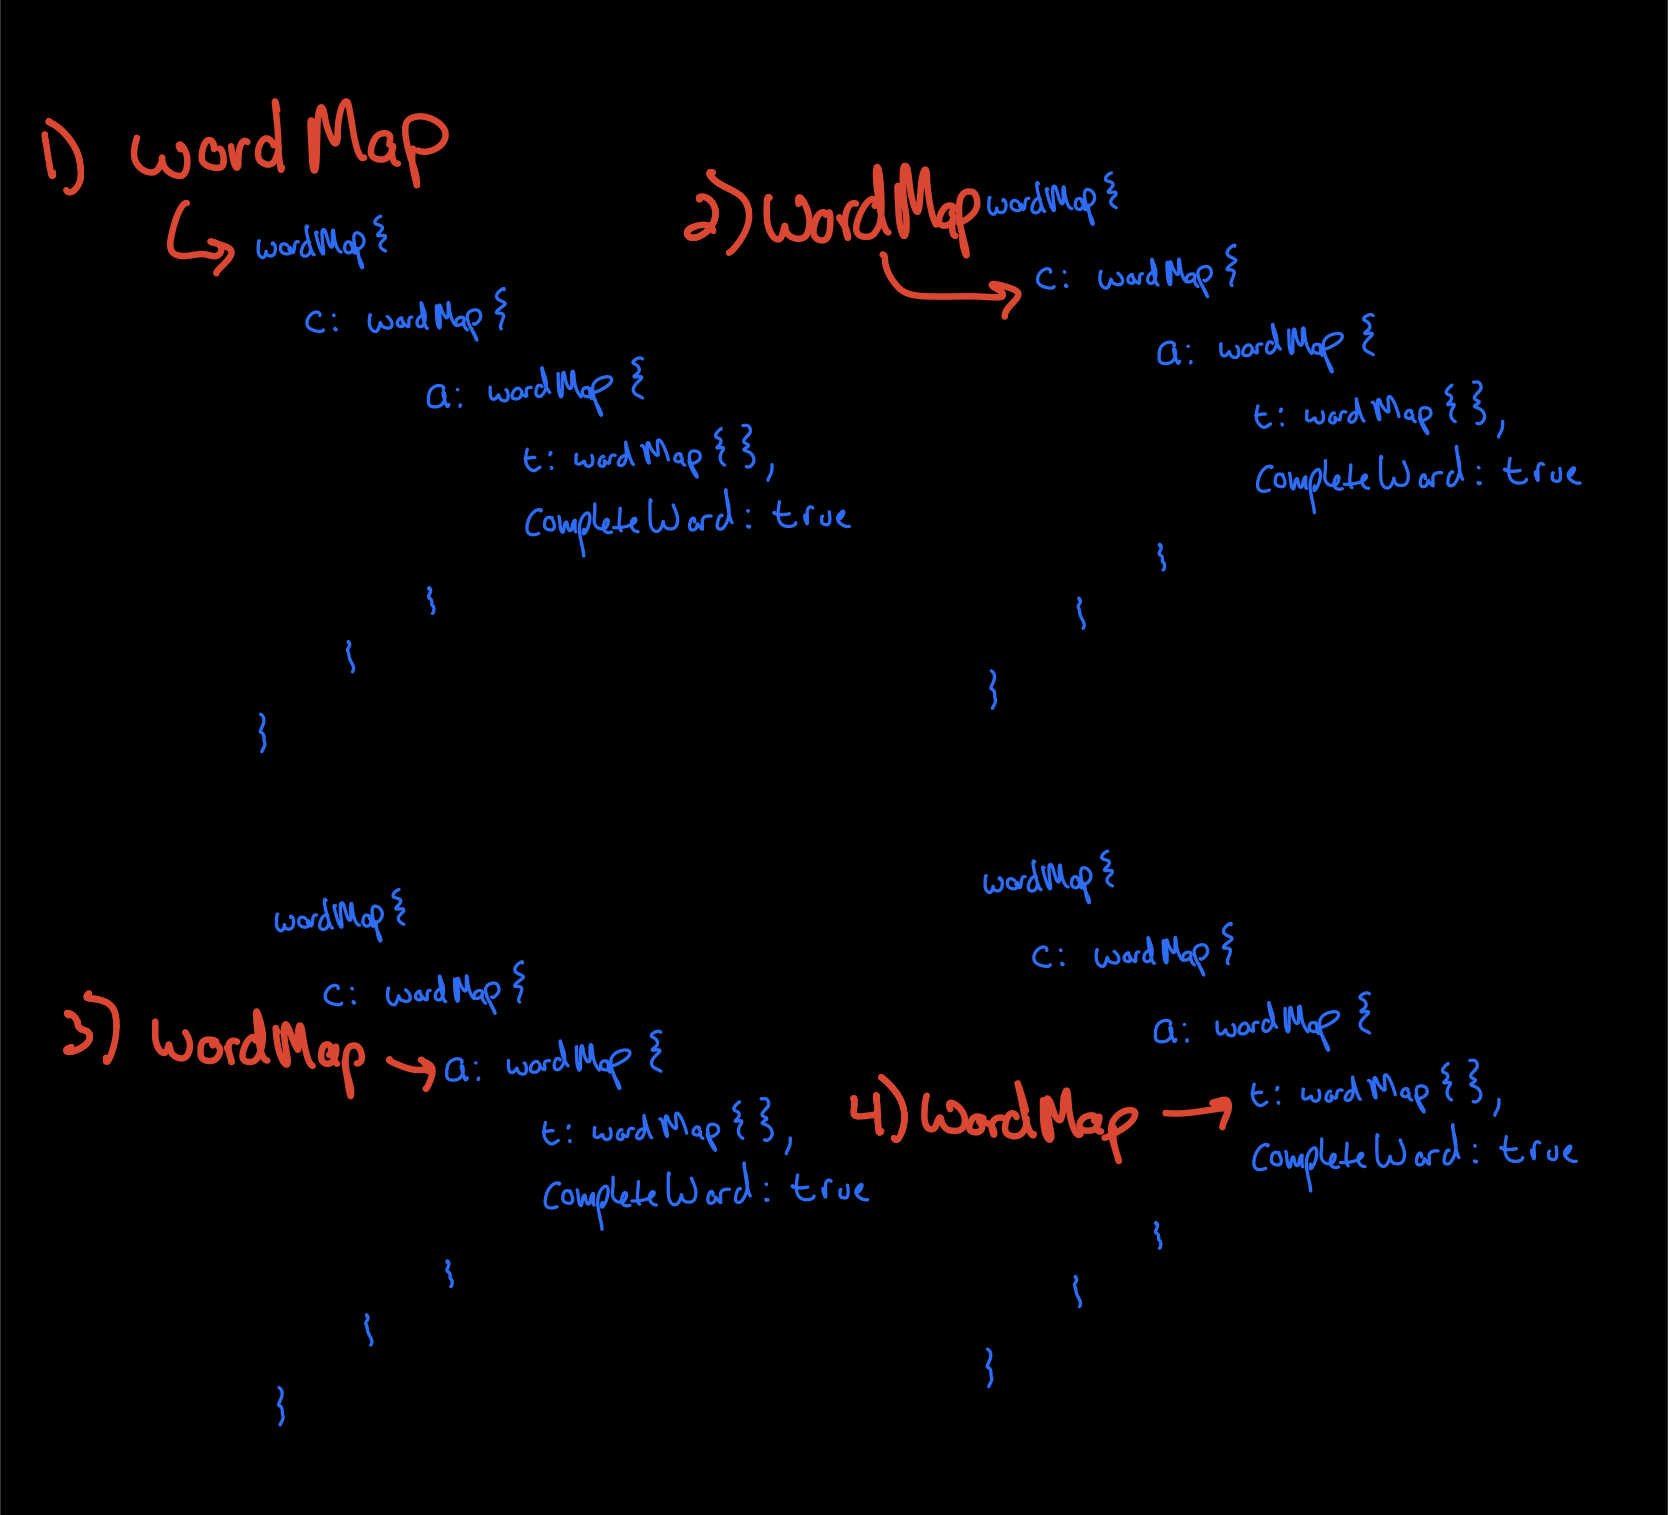 1) wordMap
wordMap{
c: wordMap{
a: wordMap{
t: wordMap{},
CompleteWord: true
}
}
}
2) WordMap wordMap{
c: wordMap{
a: wordMap{
t: wordMap{},
CompleteWord: true
}
}
}
wordMap{
c: wordMap{
3) WordMap a: wordMap{
t: wordMap{},
CompleteWord: true
}
}
}
wordMap{
c: wordMap{
a: wordMap{
4) WordMap t: wordMap{},
CompleteWord: true
}
}
}